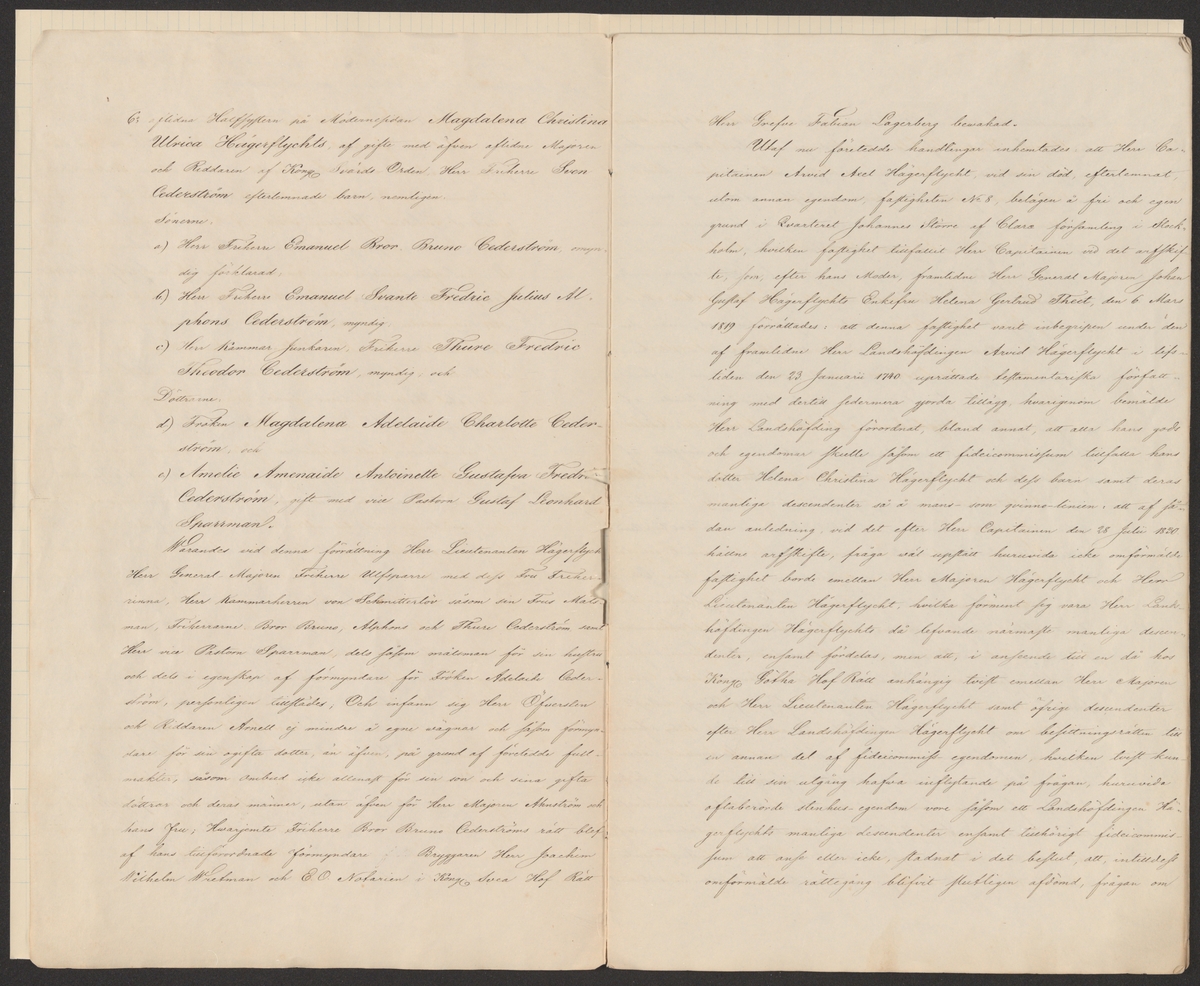 6: aflidna Halfsystern på Mödernesidan Magdalena Christina
Ulrica Hägerflychts, af gifte med äfven aflidne Majoren
och Riddaren af Kongl Svärds Orden, Herr Friherre Sven
Cederström efterlemnade barn, nemligen:
Sönerne:
a) Herr Friherre Emanuel Bror Bruno Cederström, omyn-
dig förklarad,
b) Herr Friherre Emanuel Svante Fredric Julius Al-
phons Cederström, myndig,
c) Herr Kammar Junkaren, Friherre Thure Fredric
Theodor Cederström, myndig, och
Döttrarne:
d) Fröken Magdalena Adelaide Charlotte Ceder-
ström, och
e) Amelie Amenaide Antoinette Gustafva Fredri
Cederström, gift med vice Pastorn Gustaf Leonhard
Sparrman.
Warandes vid denna förrättning Herr Lieutenanten Hägerflych
Herr General Majoren Friherre Ulfsparre med dess Fru Friher-
rinna, Herr Kammarherren von Schmitterlöv såsom sin Frus Måls-
man, Friherrarne Bror Bruno, Alphons och Thure Cederström samt
Herr vice Pastorn Sparrman, dels såsom målsman för sin hustru
och dels i egenskap af förmyndare för Fröken Adelaide Ceder-
ström, personligen tillstädes; Och infann sig Herr Öfversten
och Riddaren Arnell ej mindre å egne vägnar och såsom förmyn-
dare för sin ogifta dotter, än äfven, på grund af företedde full-
makter, såsom ombud icke allenast för sin son och sina gifta
döttrar och deras männer, utan äfven för Herr Majoren Almström och
hans Fru; Hwarjemte Friherre Bror Bruno Cederströms rätt blef
af hans tillförordnade förmyndare Bryggaren Herr Joachim
Wilhelm Wretman och E.O. Notarien i Kongl Svea Hof Rätt
Herr Grefve Fabian Lagerberg bewakad.
Utaf nu företedde handlingar inhemtades: att Herr Ca-
pitainen Arvid Axel Hägerflycht, vid sin död, efterlemnat,
utom annan egendom, fastigheten No 8, belägen å fri och egen
grund i Qvarteret Johannes Större af Clara församling i Stock-
holm, hvilken fastighet tillfallit Herr Capitainen vid det arfskif-
te, som, efter hans Moder, framlidne Herr General Majoren Johan
Gustaf Hägerflychts Enkefru Helena Gertrud Theet, den 6 Mars
1819 förrättades: att denna fastighet varit inbegripen under den
af framlidne Herr Landshöfdingen Arvid Hägerflycht i lifs-
tiden den 23 Januarii 1740 uprättade testamentariska författ-
ning med dertill sedermera gjorda tillägg, hvarigenom bemälde
Herr Landshöfding förordnat, bland annat, att alla hans gods
och egendomar skulle såsom ett fideicommissum tillfalla hans
dotter Helena Christina Hägerflycht och dess barn samt deras
manliga descendenter så å mans- som qvinno-linien: att af så-
dan anledning, vid det efter Herr Capitainen den 28 Julii 1820
hållne arfskifte, fråga väl upstått huruvida icke omförmälde
fastighet borde emellan Herr Majoren Hägerflycht och Herr
Lieutenanten Hägerflycht, hvilka förment sig vara Herr Lands
höfdingen Hägerflychts då lefvande närmaste manliga descen-
denter, ensamt fördelas, men att, i anseende till en då hos
Kongl Götha Hof Rätt anhängig tvist emellan Herr Majoren
och Herr Lieutenanten Hägerflycht samt öfrige descendenter
efter Herr Landshöfdingen Hägerflycht om besittningsrätten till
en annan del af fideicommiss egendomen, hvilken tvist kun-
de till sin utgång hafva inflytande på frågan, huruvida
oftaberörde stenhus-egendom vore såsom ett Landshöfdingen Hä-
gerflychts manliga descendenter ensamt tillhörigt fideicommis-
sum att anse eller icke, stadnat i det beslut, att, intilldess
omförmälde rättegång blifvit slutligen afdömd, frågan om